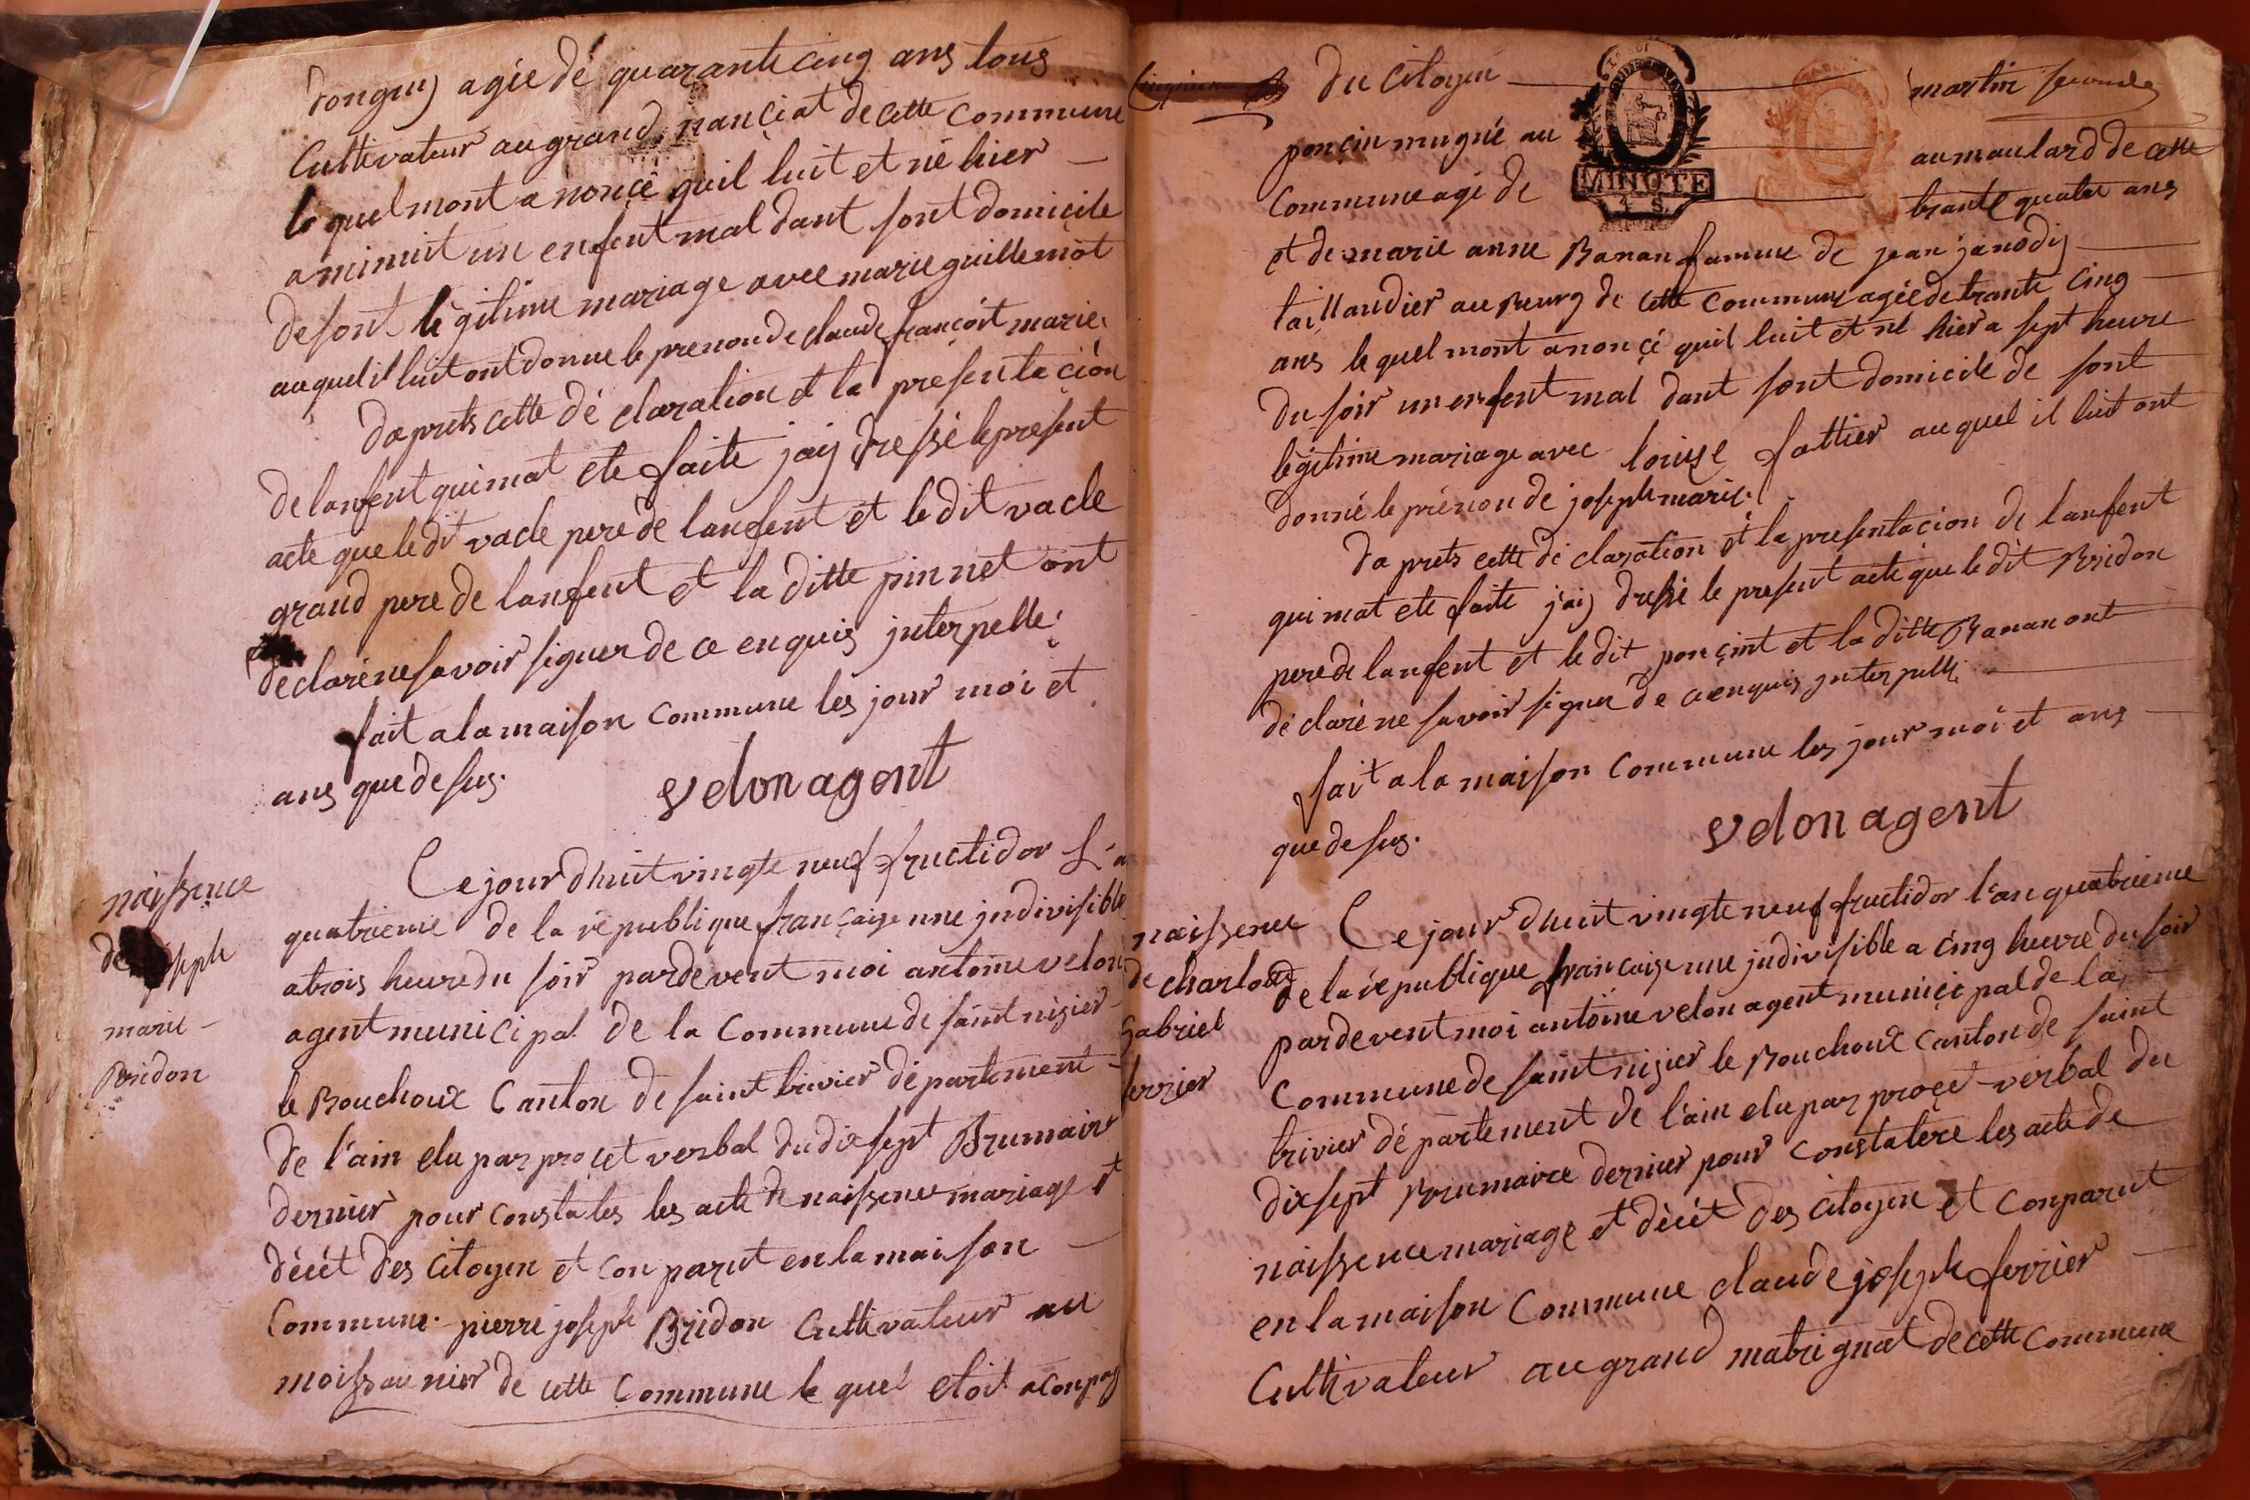 donguy agée de quarante cinq ans tous
Cultivateur au grand nanciat de cette commune
le quel mont a noncé quil luit et né hier
a minuit un enfent mal dant sont domicile
de sont légitime mariage avec marie guillemot
auquel il luit ont donné le prenon de claude françoit marie
da prets cette dé claration et la présentacion
de lanfent qui mat ete faite jaiy dressé le présent
acte que le dit vacle pere de lanfent et le dit vacle
grand pere de lanfent et la ditte pinnet ont
déclaré ne savoir signer de ce enquis interpellé
fait a la maison commune les jour moi et
ans que desus.
velon agent
naissence
de joseph
marie
Bridon
Ce jour d'huit vingte neuf fructidor L'an
quatrieme de la république française une indivisible
a trois heure du soir pardevent moi antoine velon
agent municipal de la commune de saint nizier
le Bouchoux Canton de saint trivier département
de l'ain elu par procet verbal du dix sept Brumaire
dernier pour constates les acte de naissence mariage et
décét des citoyen et con parut en la maison
Commune. pierre joseph Bridon Cultivateur au
moissaunier de cette commune le quel etoit aconpag
du citoyen martin seconde
poncin mugné au au maulard de cette
commune agé de trante quatre ans
MINUTE
et de marie anne Banan famme de jean janody
taillandier au Bourg de cette commune agée de trante cinq
ans le quel mont anoncé quil luit et né hier a sept heure
du soir un enfent mal dant sont domicile de sont
légitime mariage avec louise fattier auquel il luit ont
donné le prénon de joseph marie
da prets cette dé claration et la presentacion de lanfent
qui mat ete faite j'aiy dressé le present acte que le dit Bridon
pere de lanfent et le dit ponçint et la ditte Banan ont
dé claré ne savoir signer de ce enquis interpellé
fait a la maison commune les jour moi et ans
que desus.
velon agent
naissence
de charlo
gabriel
ferrier
Ce jour d'huit vingte neuf fructidor l'an quatrieme
de la république française une indivisible a cinq heure du soir
pardevent moi antoine velon agent municipal de la
Commune de saint nizier le Bouchoux canton de saint
trivier département de l'ain elu par procet verbal du
dix sept Brumaire dernier pour constatère les acte de
naissence mariage et décét des citoyen et conparut
en la maison Commune claude joseph ferrier
Cultivateur au grand matrignat de cette commune